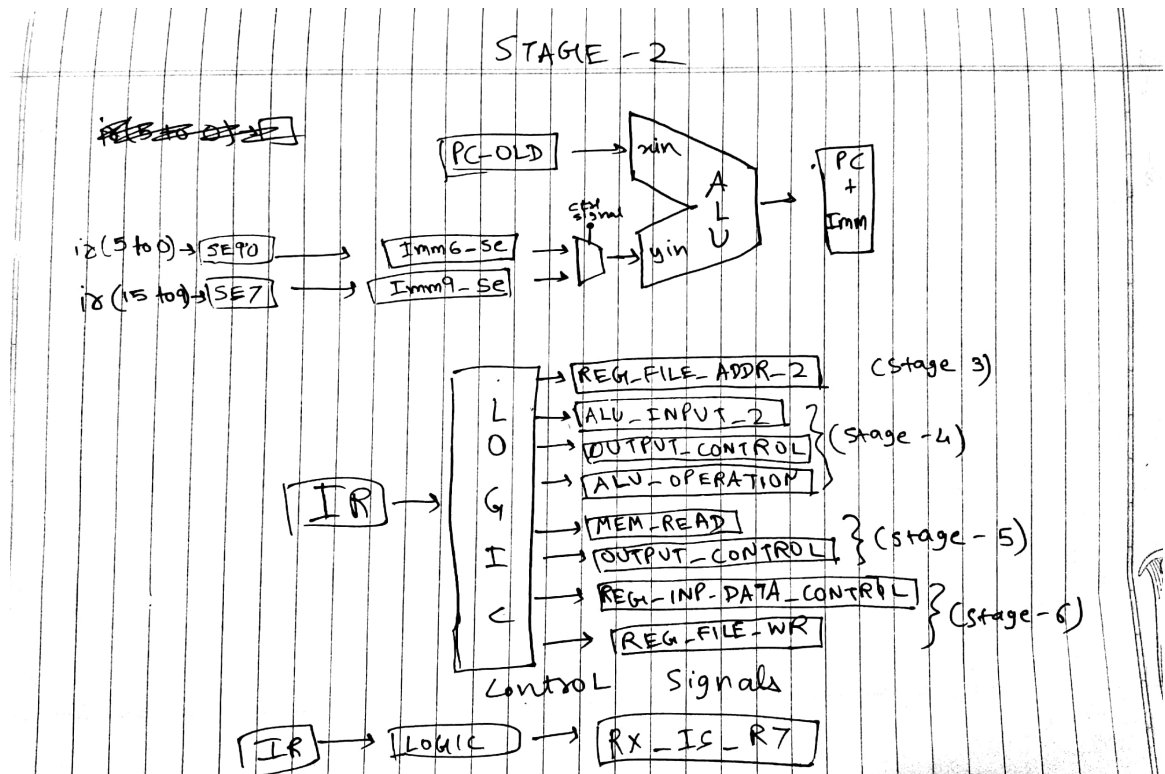 STAGE - 2
PC-OLD
xin
ALU
PC + Imm
ctrl signal
yin
ir(5 to 0)
Imm6_Se
SE7
Imm9_Se
REG_FILE_ADDR_2 (stage 3)
LOGIC
ALU_INPUT_2
OUTPUT_CONTROL (stage-4)
ALU_OPERATION
IR
MEM_READ
OUTPUT_CONTROL (stage-5)
REG_INP_DATA_CONTROL
REG_FILE_WR (stage-6)
Control Signals
IR LOGIC RX_IS_R7